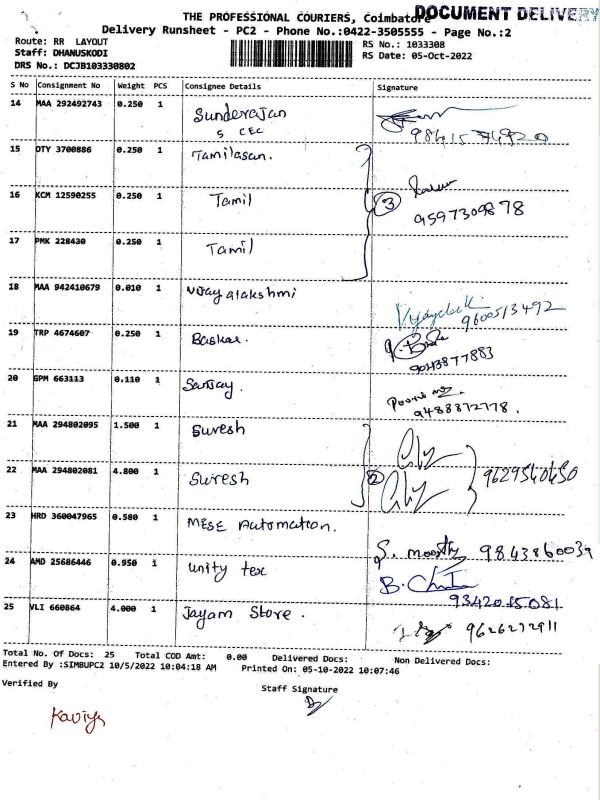 THE PROFESSIONAL COURIERS, Coimbatore
DOCUMENT DELIVERY
Delivery Runsheet - PC2 - Phone No.:0422-3505555 - Page No.:2
Route: RR LAYOUT
RS No.: 1033308
Staff: DHANUSKODI
RS Date: 05-Oct-2022
DRS No.: DCJB103330802
S No Consignment No Weight PCS Consignee Details Signature
14 MAA 292492743 0.250 1 Sunderajan
S CEC
15 DTY 3700886 0.250 1 Tamilasan.
16 KCM 12590255 0.250 1 Tamil 3
9597309878
17 PMK 228430 0.250 1 Tamil
18 MAA 942410679 0.010 1 Vijayalakshmi
9600513492
19 TRP 4674607 0.250 1 Baskar.
9043877883
20 GPM 663113 0.110 1 Sanjay.
9488872778.
21 MAA 294802095 1.500 1 Suresh
22 MAA 294802081 4.800 1 Suresh 2 9629540450
23 HRD 360047965 0.580 1 MESE Automation.
S. moorthy 9843860039
24 AMD 25686446 0.950 1 unity tex
B.
9342015081
25 VLI 660864 4.000 1 Jayam Store.
9626272911
Total No. Of Docs: 25 Total COD Amt: 0.00 Delivered Docs: Non Delivered Docs:
Entered By :SIMBUPC2 10/5/2022 10:04:18 AM Printed On: 05-10-2022 10:07:46
Verified By
Staff Signature
Kaviya